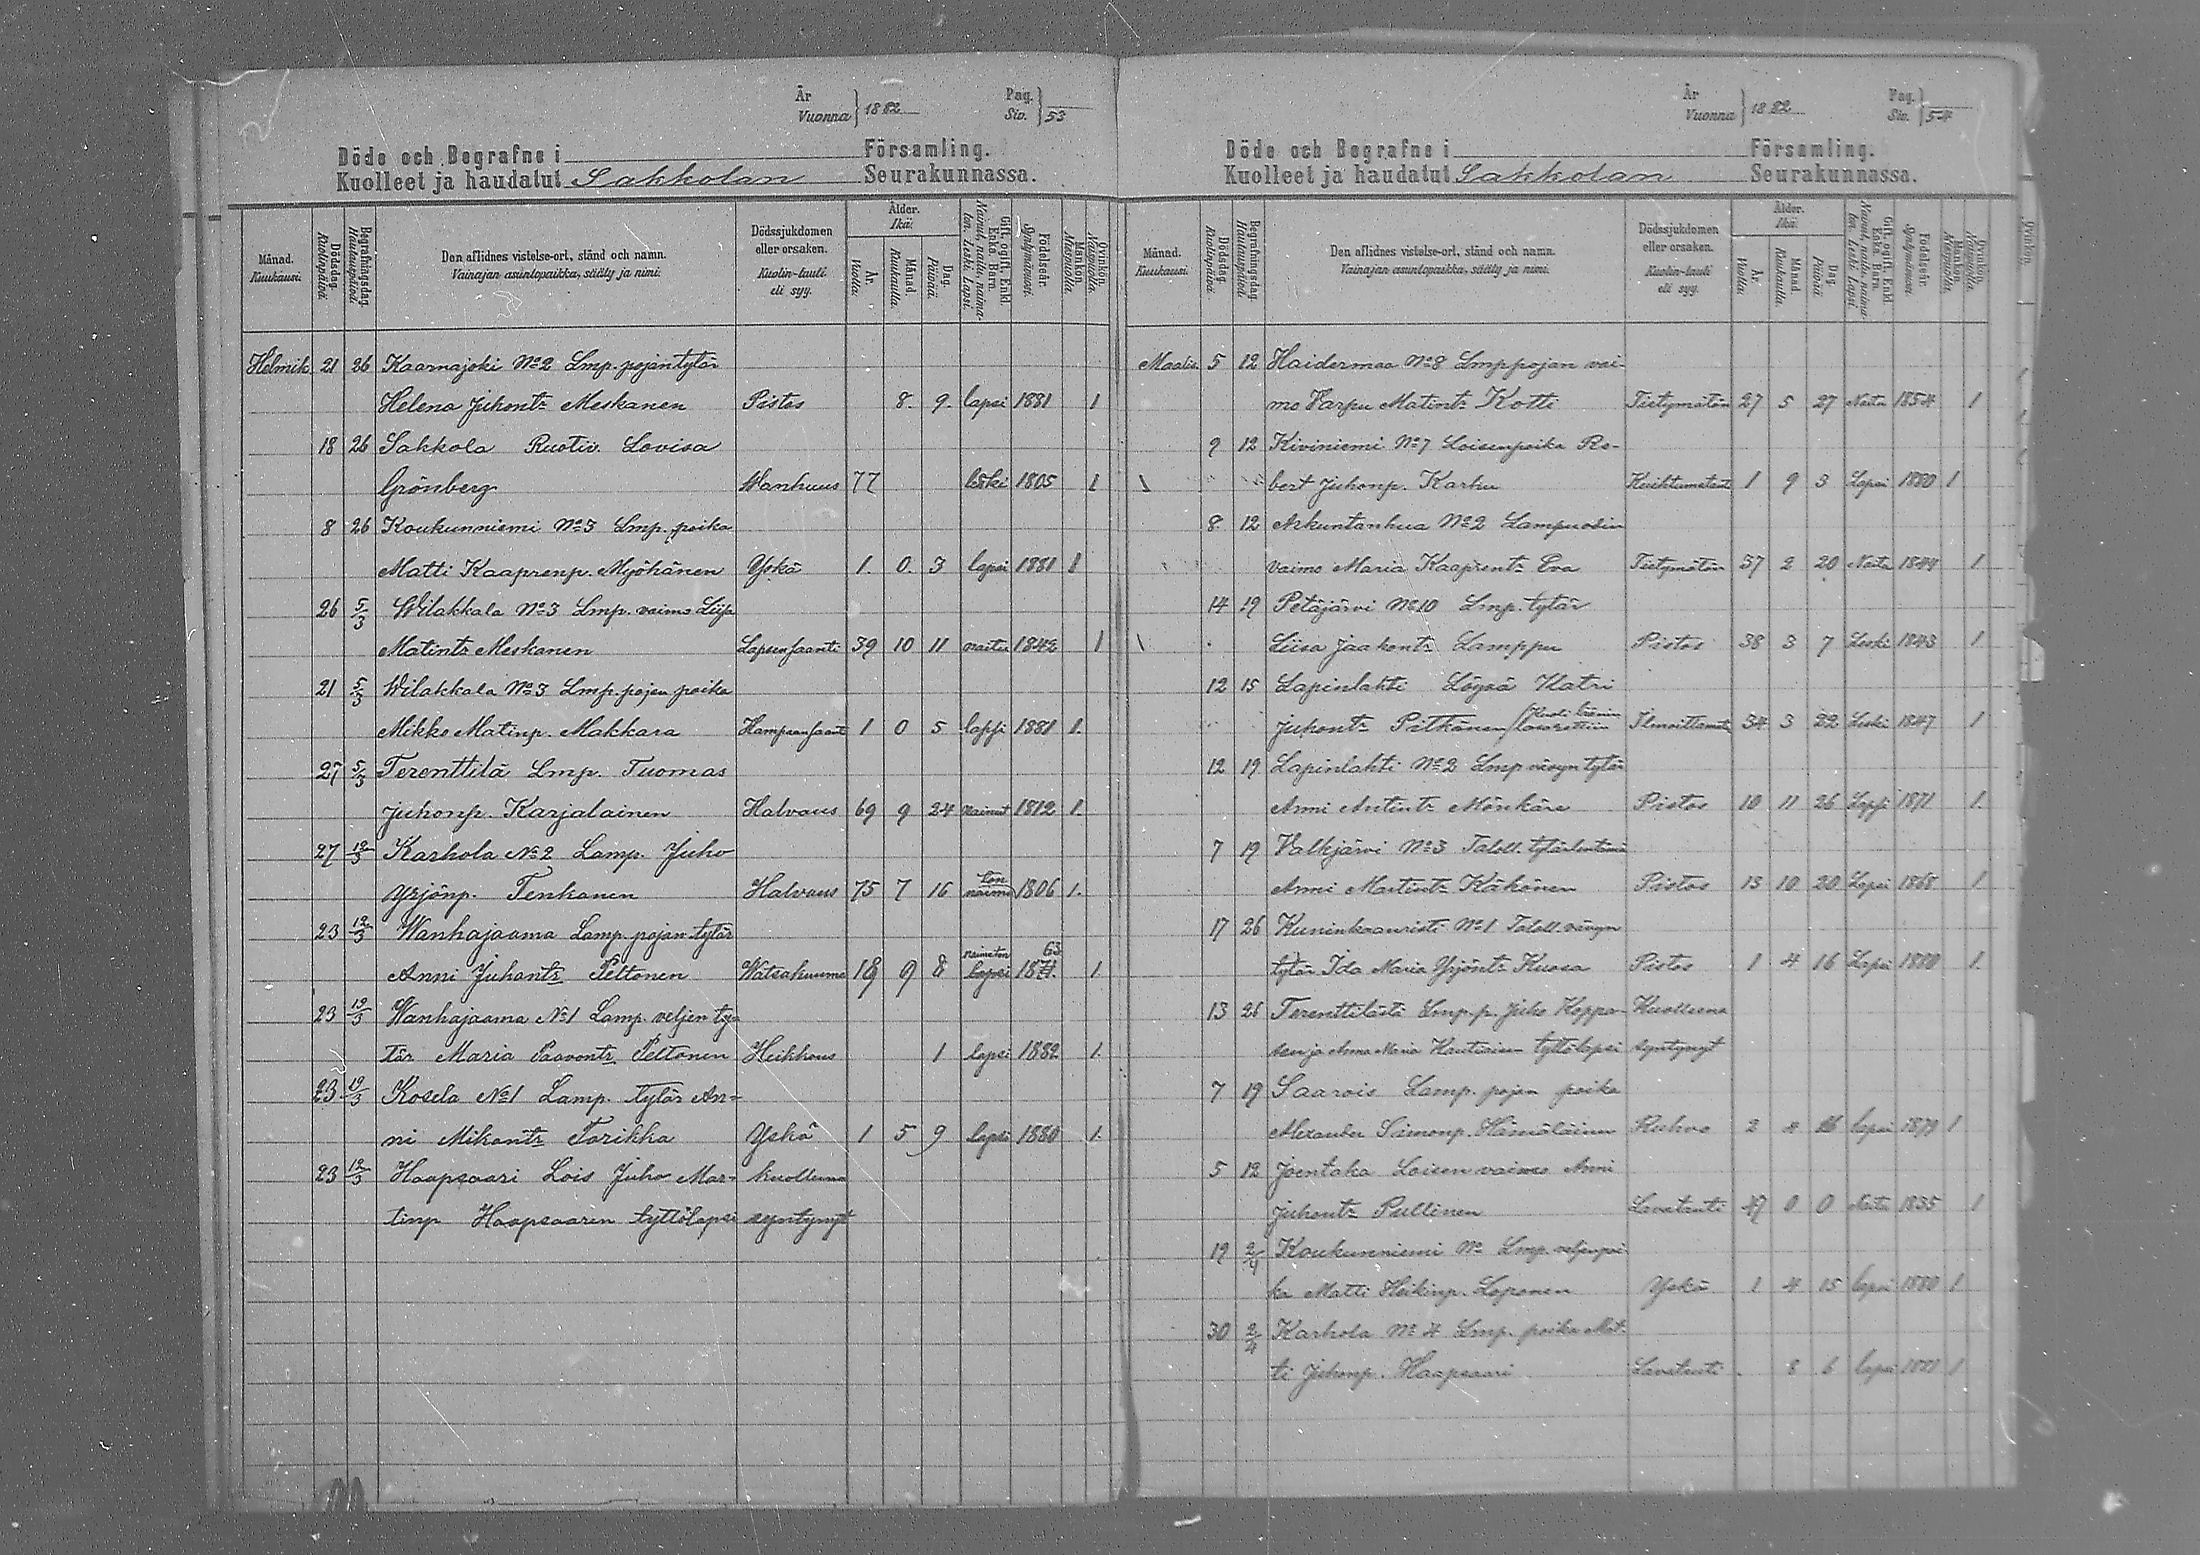 År Vuonna } 1882 Pag. Siv. } 53
Döde och Begrafne i Församling.
Kuolleet ja haudatut Sakkolan Seurakunnassa.
Månad. Kuukausi. Dödsdag. Kuolinpäivä. Begrafningsdag. Hautauspäivä. Den aflidnes vistelse-ort, stånd och namn. Vainajan asuntopaikka, sääty ja nimi. Dödssjukdomen eller orsaken. Kuolin-tauti eli syy. Ålder. Ikä. År. Vuotta. Månad. Kuukautta. Dag. Päivää. Gift, ogift, Enkl. Enka, Barn. Nainut, naitu, naimaton, Leski, Lapsi. Födelseår. Syntymävuosi. Mankön. Miespuolta. Qvinkön. Naispuolta.
Helmik. 21 26 Kaarnajoki No 2 Lmp. pojantytär
Helena Juhontr Meskanen Pistos 8. 9. lapsi 1881 1
18 26 Sakkola Ruotiv. Lovisa
Grönberg Wanhuus 77 leski 1805 1
8 26 Koukunniemi No 3 Lmp. poika
Matti Kaaprenp. Myöhänen Yskä 1. 0. 3 lapsi 1881 1
26 5/3 Wilakkala No 3 Lmp. vaimo Liisa
Matintr Meskanen Lapsensaanti 39 10 11 naitu 1842 1
21 5/3 Wilakkala No 3 Lmp. pojan poika
Mikko Matinp. Makkara Hampaansaant 1 0 5 lapsi 1881 1.
27 5/3 Terenttilä Lmp. Tuomas
Juhonp. Karjalainen Halvaus 69 9 24 nainut 1812 1.
27 12/3 Karhola No 2 Lamp. Juho
Yrjönp. Tenkanen Halvaus 75 7 16 naimaton 1806 1.
23 12/3 Wanhajaama Lamp. pojan tytär
Anni Juhontr Peltonen Watsakuume 18 9 8 naimaton lapsi 1871. 63 1.
23 12/3 Wanhajaama No 1 Lamp. veljen ty-
tär Maria Paavontr Peltonen Heikkous 1 lapsi 1882 1.
23 12/3 Kosela No 1 Lamp. tytär An-
ni Mikontr Torikka Yskä 1 5 9 lapsi 1880 1.
23 12/3 Haapsaari Lois Juho Mar- kuolleena
tinp Haapsaaren tyttölapsi syntynyt
År Vuonna } 1882 Pag. Siv. } 54
Döde och Begrafne i Församling.
Kuolleet ja haudatut Sakkolan Seurakunnassa.
Månad. Kuukausi. Dödsdag. Kuolinpäivä. Begrafningsdag. Hautauspäivä. Den aflidnes vistelse-ort, stånd och namn. Vainajan asuntopaikka, sääty ja nimi. Dödssjukdomen eller orsaken. Kuolin-tauti eli syy. Ålder. Ikä. År. Vuotta. Månad. Kuukautta. Dag. Päivää. Gift, ogift, Enkl. Enka, Barn. Nainut, naitu, naimaton, Leski, Lapsi. Födelseår. Syntymävuosi. Mankön. Miespuolta. Qvinkön. Naispuolta.
Maalis. 5 12 Haidermaa No 8 Lmp pojan vai-
mo Varpu Matintr Kotti Tietymätön 27 5 27 Naitu 1854 1
9 12 Kiviniemi No 7 Loisenpoika Ro-
bert Juhonp. Karhu 1 9 3 Lapsi 1880 1
8. 12 Arkuntanhua No 2 Lampuodin
vaimo Maria Kaaprentr Eva Tietymätön 37 2 20 Naitu 1844 1
14 19 Petäjärvi No 10 Lmp. tytär
Liisa Jaakontr Lamppu Pistos 38 3 7 Leski 1843 1
12 15 Lapinlahti Löysä Katri
Juhontr Pitkänen Ilmoittamata 34 3 22 Leski 1847 1
12 19 Lapinlahti No 2 Lmp vävyn tytär
Anni Antintr Mönkäre Pistos 10 11 26 Lapsi 1871 1.
7 19 Valkjärvi No 3 Taloll.
Anni Martintr Kähönen Pistos 13 10 20 Lapsi 1868 1
17 26 Kuninkaanristi No 1 Taloll. vävyn
tytär Ida Maria Yrjöntr Kuosa Pistos 1 4 16 Lapsi 1880 1.
13 26 Terenttilästä Lmp. p. Juho Koppo- Kuolleena
sen ja Anna Maria Hautiaisen tyttölapsi syntynyt
7 19 Saarois Lamp. pojan poika
Alexander Simonp. Hämäläinen Rohvo 2 lapsi 1879 1
5 12 Joentaka Loisen vaimo Anni
Juhontr Pullinen Lavatauti 47 0 0 Naitu 1835 1
19 2/4 Koukunniemi No Lmp. veljenpoi-
ka Matti Heikinp. Loponen Yskä 1 4 15 lapsi 1880 1
30 2/4 Karhola No 4 Lmp. poika Mat-
ti Juhonp. Haapsaari Lavatauti 8 6 lapsi 1881 1